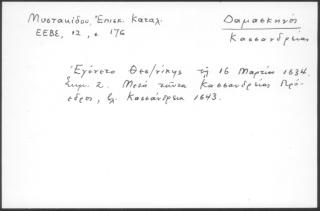 Μυστακίδου, Ἐπισκ. Καταλ.
ΕΕΒΣ, 12, σ. 176
Δαμασκηνός
Κασσανδρείας
Ἐγένετο Θεσ/νίκης τῇ 16 Μαρτίου 1634.
Σημ. 2. Μετὰ ταῦτα Κασσανδρείας Πρό-
εδρος, βλ. Κασσάνδρεια 1643.